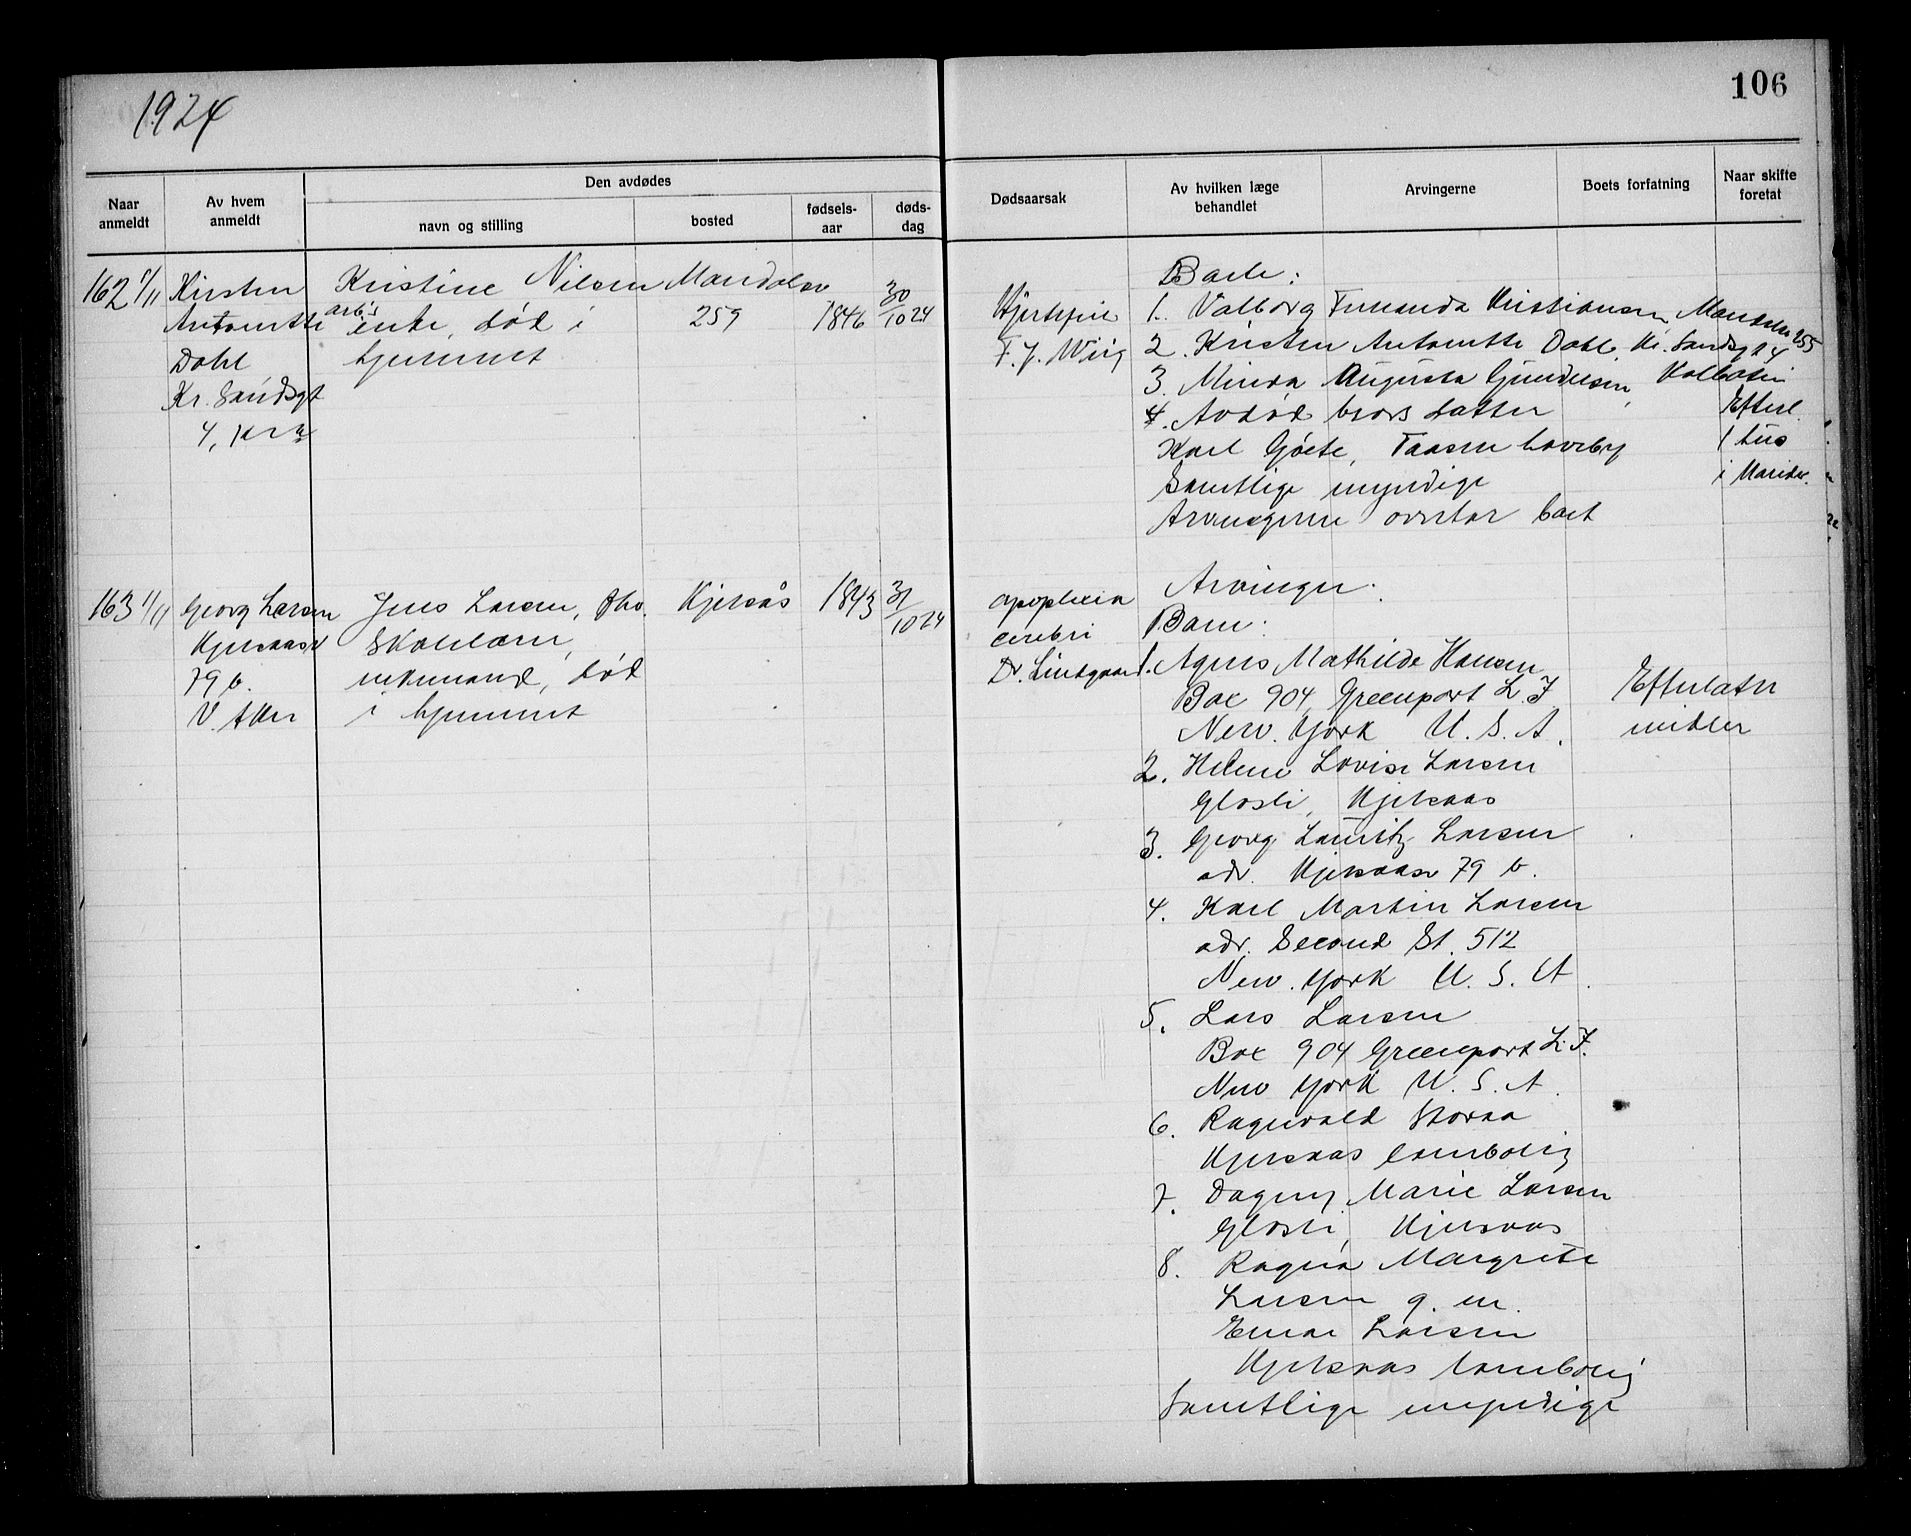 1924
106
Naar anmeldt
Av hvem anmeldt
Den avdødes
navn og stilling
bosted
fødsels-aar
døds-dag
Dødsaarsak
Av hvilken læge behandlet
Arvingerne
Boets forfatning
Naar skifte foretat
162 1/11 Kirsten
Antonette
Dahl
Kr. Sandsgt
4, Kra
Kristine Nilsen
arb's enke, død i
hjemmet
Maridalen
259
1846
30/10 24
F. J. Wiig
Barn:
1. Valborg Kristiansen, Maridalen 255
2. Kirsten Antonette Dahl, Kr. Sandsgt 4
3. Minda Augusta Gundersen, Kolbotn
4. Avdød brors datter
Karl Gjete, Taasen haveby
Samtlige myndige
Arvingerne overtar boet
Efterl.
1 hus
i Marid.
163 1/11 Georg Larsen
Kjelsaasv
79 b.
V. Aker
Jens Larsen, fhv.
enkemand, død
i hjemmet
Kjelsås
1843
31/10 24
apoplexia
cerebri
Dr. Lindgaard
Arvinger:
Barn:
1. Agnes Mathilde Hansen
Box 904, Greenport L. I.
New. York U. S. A.
2. Helene Lovise Larsen
Glasli, Kjelsaas
3. Georg Lauritz Larsen
adr. Kjelsaasv 79 b.
4. Karl Martin Larsen
adr. Second St. 512
New. York U. S. A.
5. Lars Larsen
Box 904 Greenport L. I.
New York U. S. A.
6. Ragnvald
Kjelsaas
7. Dagny Marie Larsen
Glasli, Kjelsaas
8. Ragna Margrete
Larsen g. m.
Einar Larsen
Kjelsaas
Samtlige myndige
Efterlatte
midler